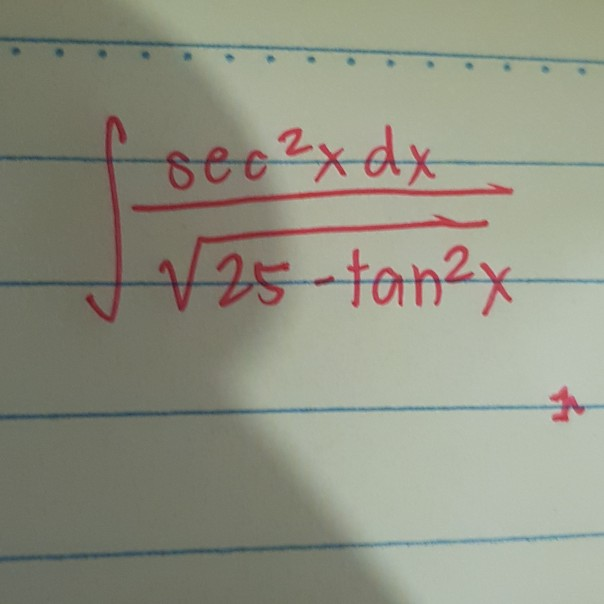 ∫ sec²x dx / √25 - tan²x